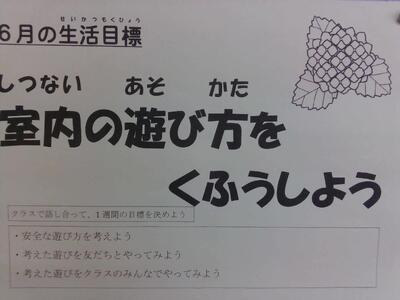 せいかつもくひょう
6月の生活目標
しつない あそ かた
室内の遊び方を
くふうしよう
クラスで話し合って、1週間の目標を決めよう
・安全な遊び方を考えよう
・考えた遊びを友だちとやってみよう
・考えた遊びをクラスのみんなでやってみよう